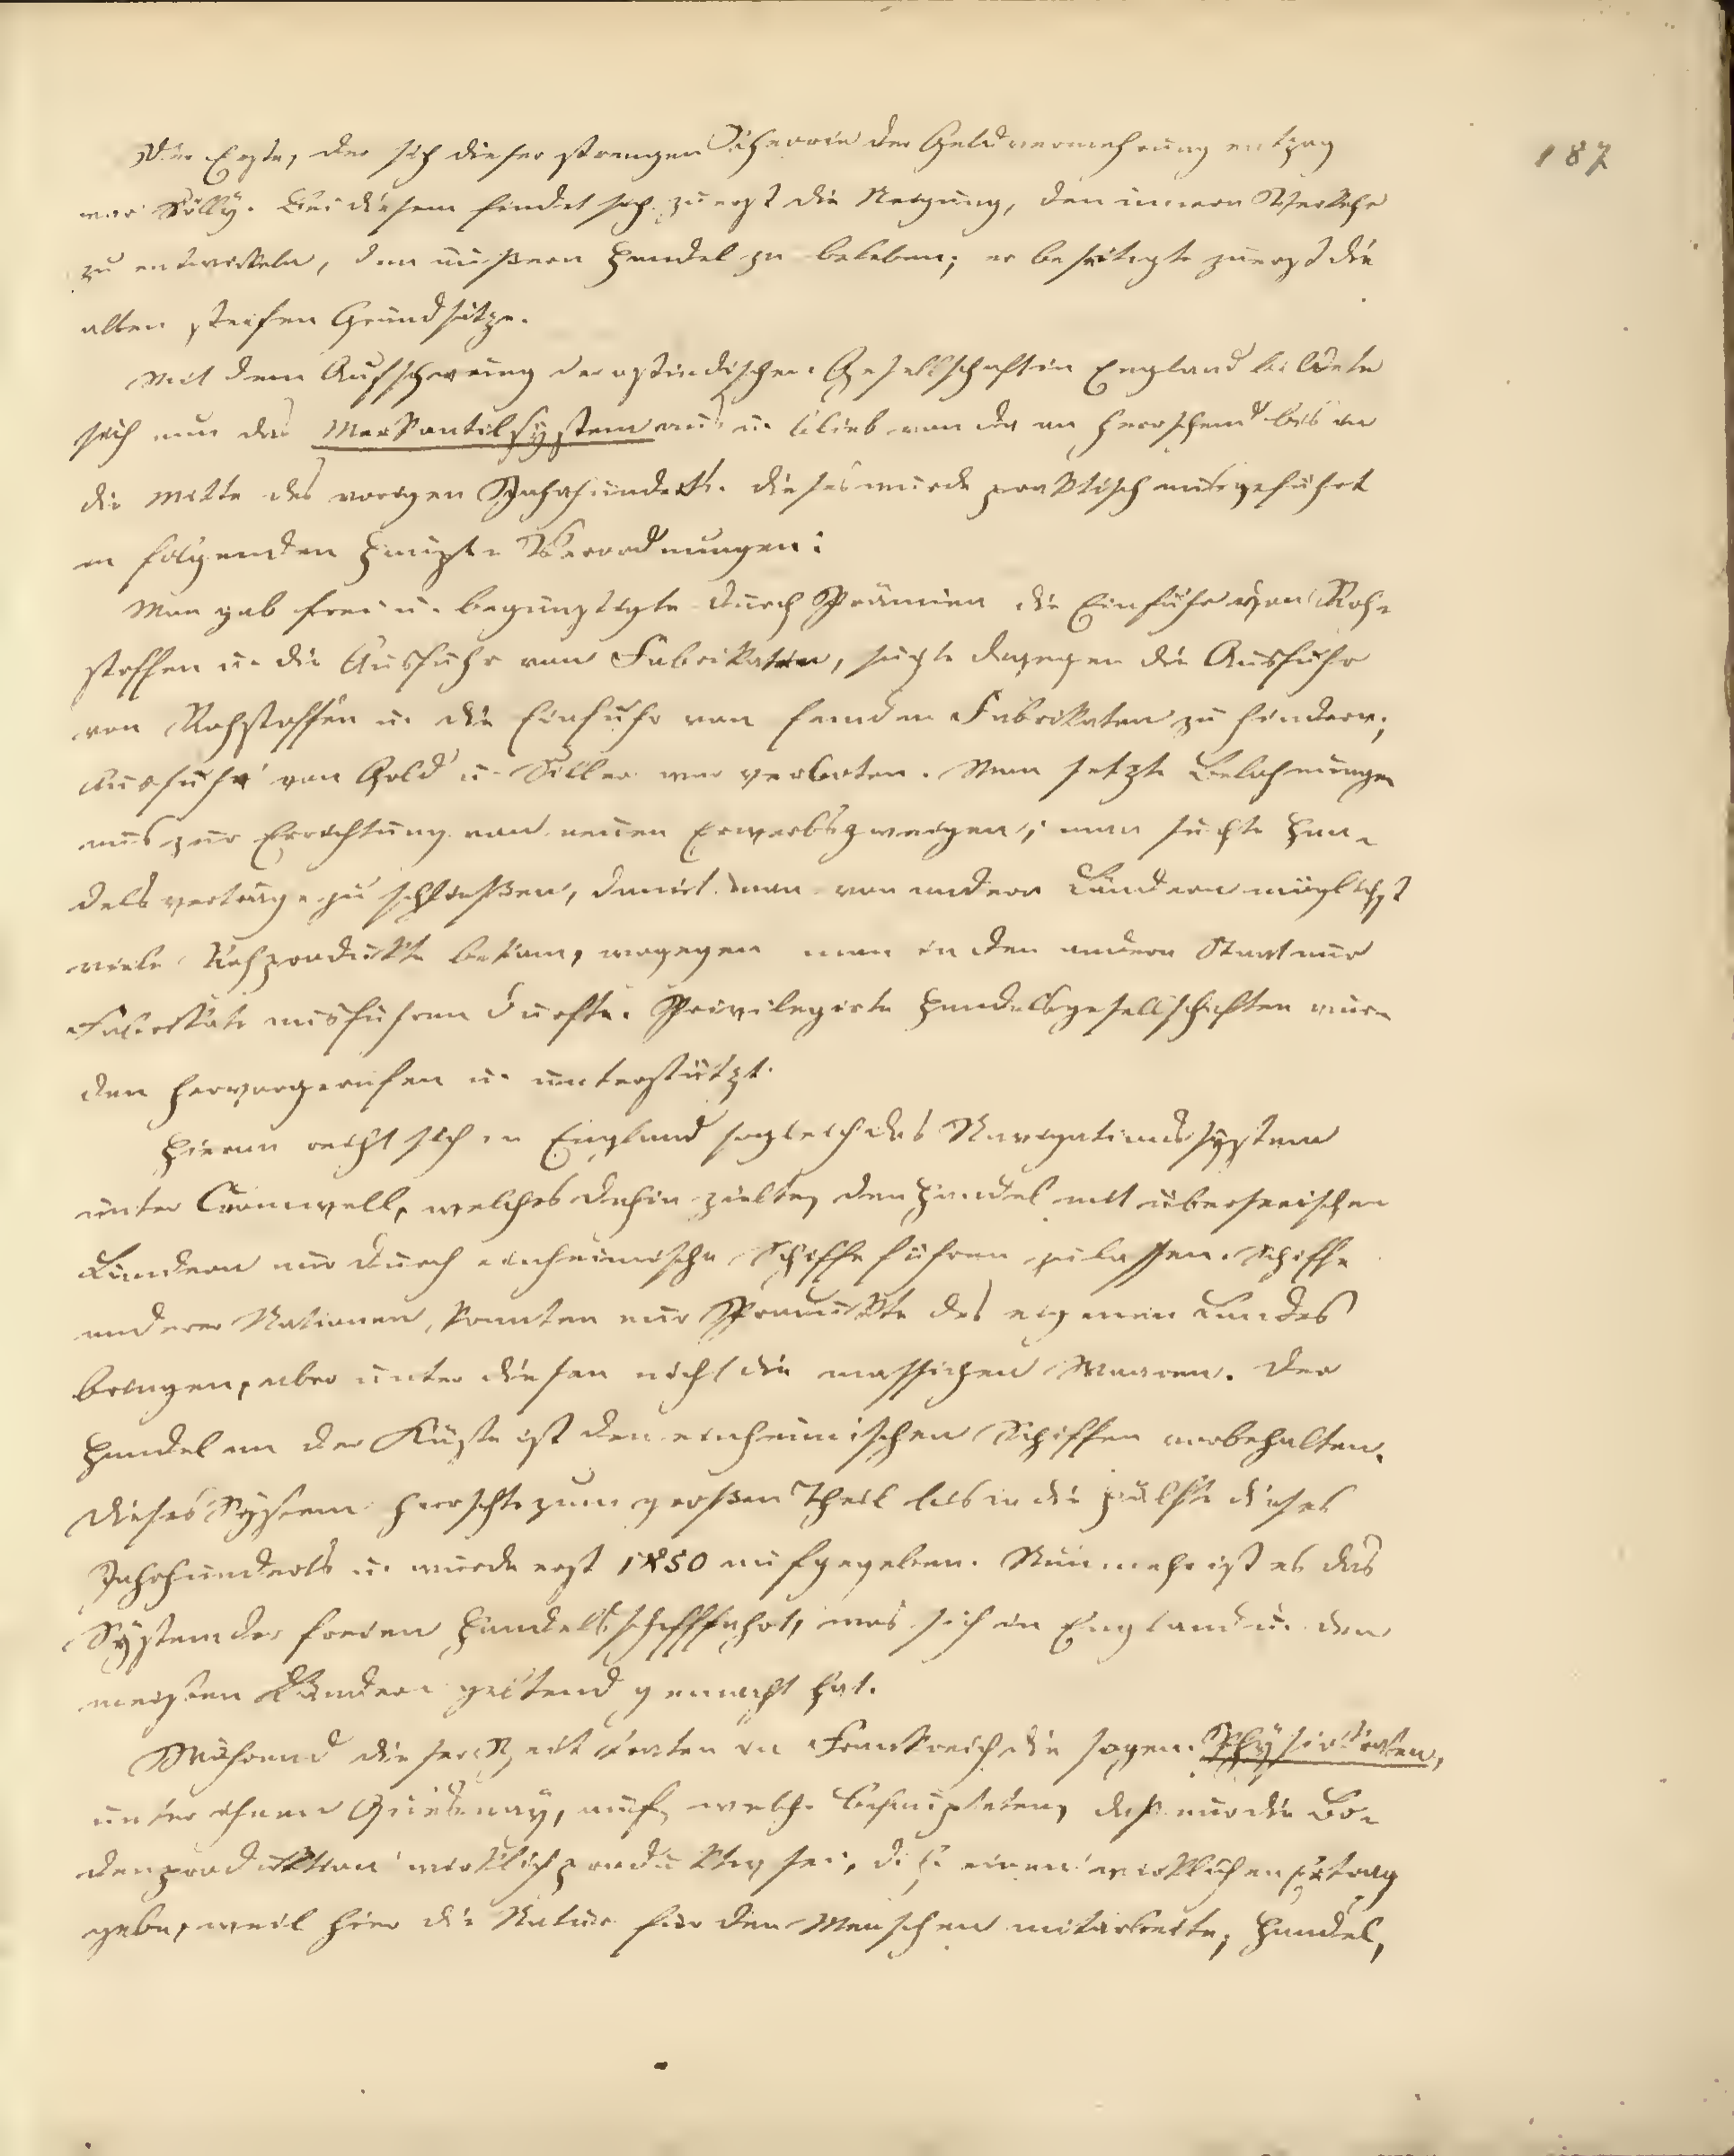 187
Der Erste, der sich dieser strengen Theorie der Geldvermehrung entzog
war Sülly. Bei diesem findet sich zuerst die Neigung, den innern Verkehr
zu entwickeln, den äußern Handel zu beleben; er beseitigte zuerst die
alten steifen Grundsätze.
Mit dem Aufschwung der ostindischen Gesellschaft in England bildete
sich nun das Merkantilsystem aus u. blieb von da an herrschend bis in
die Mitte des vorigen Jahrhunderts. Dieses wurde praktisch ausgeführt
in folgenden Haupt-Verordnungen:
Man gab frei u. begünstigte durch Prämien die Einfuhr von Roh-
stoffen u. die Ausfuhr von Fabrikaten, suchte dagegen die Ausfuhr
von Rohstoffen u. die Einfuhr von fremden Fabrikaten zu hindern;
Ausfuhr von Gold u. Silber war verboten. Man setzte Belohnungen
aus zur Errichtung von neuen Erwerbszweigen; man suchte Han-
delsverträge zu schließen, damit man von andern Ländern möglichst
viele Rohprodukte bekam, wogegen man in den andern Staat nur
Fabrikate ausführen durfte. Privilegirte Handelsgesellschaften wur-
den hervorgerufen u. unterstützt.
Hieran reiht sich in England sogleich das Navigationssystem
unter Cromwell, welches dahin zielte, den Handel mit überseeischen
Ländern nur durch einheimische Schiffe führen zu lassen. Schiffe
anderer Nationen, konnten nur Produkte des eigenen Landes
bringen, aber unter diesen nicht die massigen Waaren. Der
Handel an der Küste ist den einheimischen Schiffen vorbehalten.
Dieses System herrschte zum großen Theil bis in die Hälfte dieses
Jahrhunderts u. wurde erst 1850 aufgegeben. Nunmehr ist es das
System der freien Handelsschifffahrt, was sich in England u. den
meisten Ländern geltend gemacht hat.
Während dieser Zeit traten in Frankreich die sogen. Physiokraten,
unter ihnen Quesnay, auf, welche behaupteten, daß nur die Bo-
denproduktion wirklich produktiv sei, d. h. einen wirklichen Ertrag
gebe, weil hier die Natur für den Menschen mitarbeite; Handel,